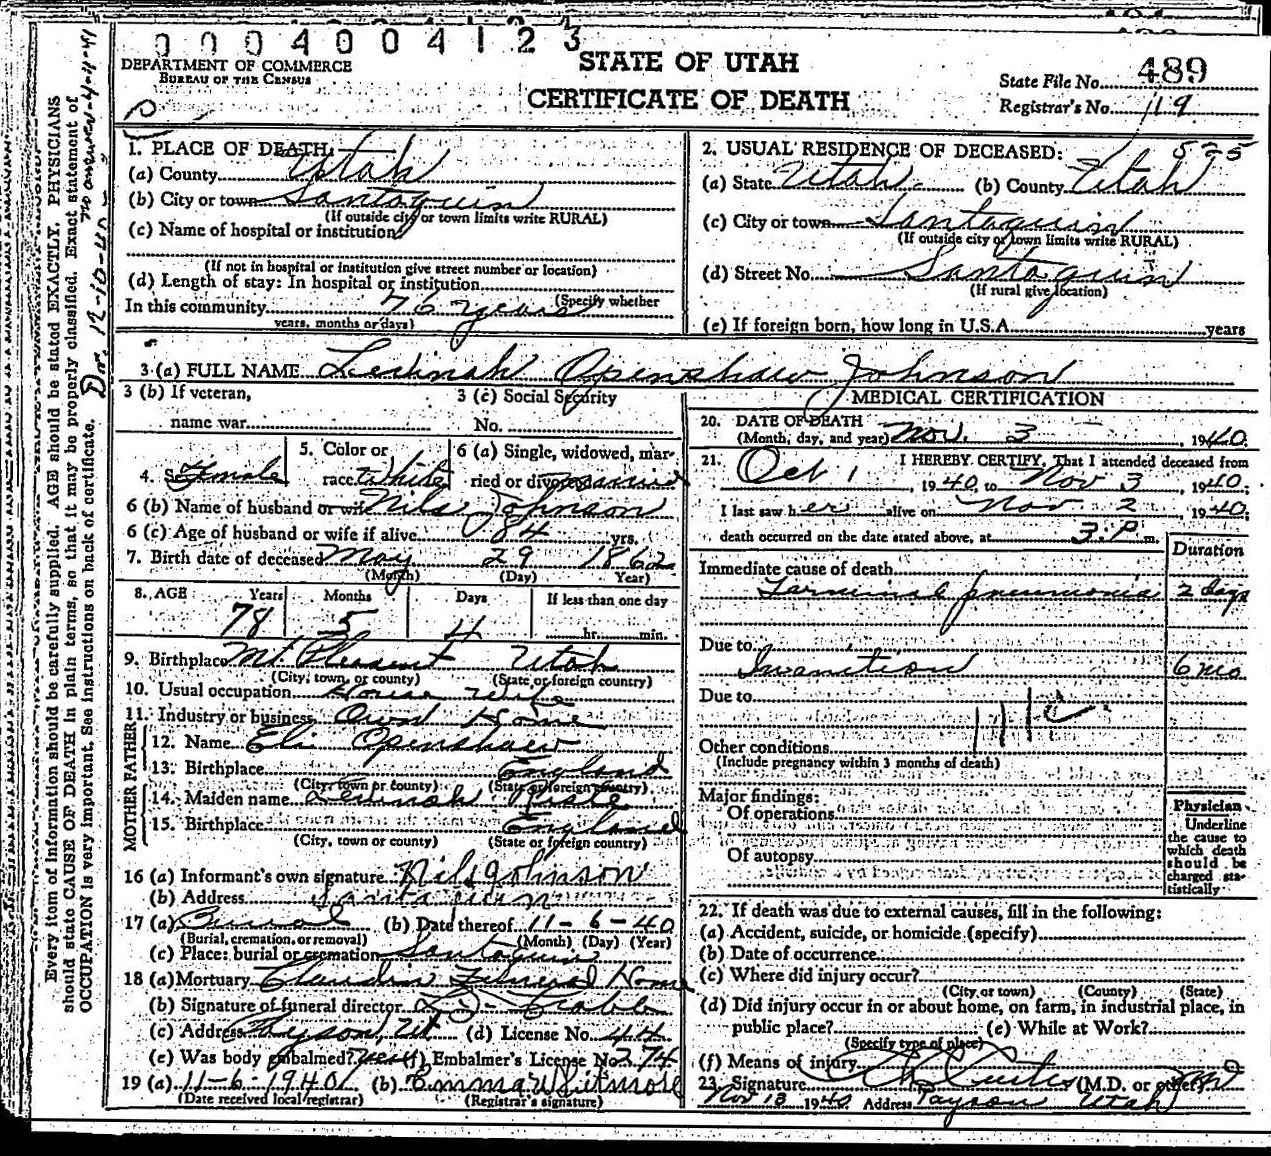 0 0 0 4 0 0 4 1 2 3
DEPARTMENT OF COMMERCE
BUREAU OF THE CENSUS
STATE OF UTAH
CERTIFICATE OF DEATH
State File No. 489
Registrar's No. 119
Every item of information should be carefully supplied. AGE should be stated EXACTLY. PHYSICIANS
should state CAUSE OF DEATH in plain terms, so that it may be properly classified. Exact statement of
OCCUPATION is very important. See instructions on back of certificate.
Dr. 12-10-40 - no answer - 4-4-41
1. PLACE OF DEATH:
(a) County Utah
(b) City or town Santaquin
(If outside city or town limits write RURAL)
(c) Name of hospital or institution
(If not in hospital or institution give street number or location)
(d) Length of stay: In hospital or institution
(Specify whether
In this community 76 years
years, months or days)
2. USUAL RESIDENCE OF DECEASED: 525
(a) State Utah (b) County Utah
(c) City or town Santaquin
(If outside city or town limits write RURAL)
(d) Street No. Santaquin
(If rural give location)
(e) If foreign born, how long in U.S.A. years
3 (a) FULL NAME Levinah Openshaw Johnson
3 (b) If veteran,
name war
3 (c) Social Security
No.
4. Sex Female
5. Color or
race White
6 (a) Single, widowed, mar-
ried or divorced married
6 (b) Name of husband or wife Nils Johnson
6 (c) Age of husband or wife if alive 84 yrs.
7. Birth date of deceased May 29 1862
(Month) (Day) Year)
8. AGE Years Months Days If less than one day
78 5 4 hr. min.
9. Birthplace Mt. Pleasant Utah
(City, town, or county) (State or foreign country)
10. Usual occupation House Wife
11. Industry or business Own Home
FATHER
12. Name Eli Openshaw
13. Birthplace England
(City, town or county) (State or foreign country)
MOTHER
14. Maiden name Levinah
15. Birthplace England
(City, town or county) (State or foreign country)
16 (a) Informant's own signature Nils Johnson
(b) Address Santaquin
17 (a) Burial (b) Date thereof 11-6-40
(Burial, cremation, or removal) (Month) (Day) (Year)
(c) Place: burial or cremation Santaquin
18 (a) Mortuary Claudin Funeral Home
(b) Signature of funeral director
(c) Address Payson, Ut (d) License No. 44
(e) Was body embalmed? yes (f) Embalmer's License No. 274
19 (a) 11-6-1940 (b) Emma Whitmore
(Date received local registrar) (Registrar's signature)
MEDICAL CERTIFICATION
20. DATE OF DEATH
(Month, day, and year) Nov. 3 1940.
21. I HEREBY CERTIFY, That I attended deceased from
Oct 1, 1940, to Nov 3 1940;
I last saw her alive on Nov 2 1940
death occurred on the date stated above, at 3:P. m.
Duration
Immediate cause of death
Terminal pneumonia 2 days
Due to
Inanition 6 mo
Due to
Other conditions
(Include pregnancy within 3 months of death)
Major findings:
Of operations
Of autopsy
Physician
Underline
the cause to
which death
should be
charged sta-
tistically
22. If death was due to external causes, fill in the following:
(a) Accident, suicide, or homicide (specify)
(b) Date of occurrence
(c) Where did injury occur?
(City or town) (County) (State)
(d) Did injury occur in or about home, on farm, in industrial place, in
public place? (e) While at Work?
(Specify type of place)
(f) Means of injury
23. Signature Curtis (M.D. or other)
Nov 13 1940 Address Payson Utah